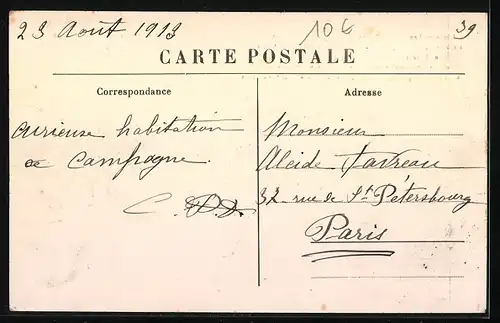 23 Août 1913
10€
39
CARTE POSTALE
Correspondance
Adresse
curieuse habitation
de campagne.
C.
Monsieur
Alcide Favreau
37 rue de St Pétersbourg
Paris